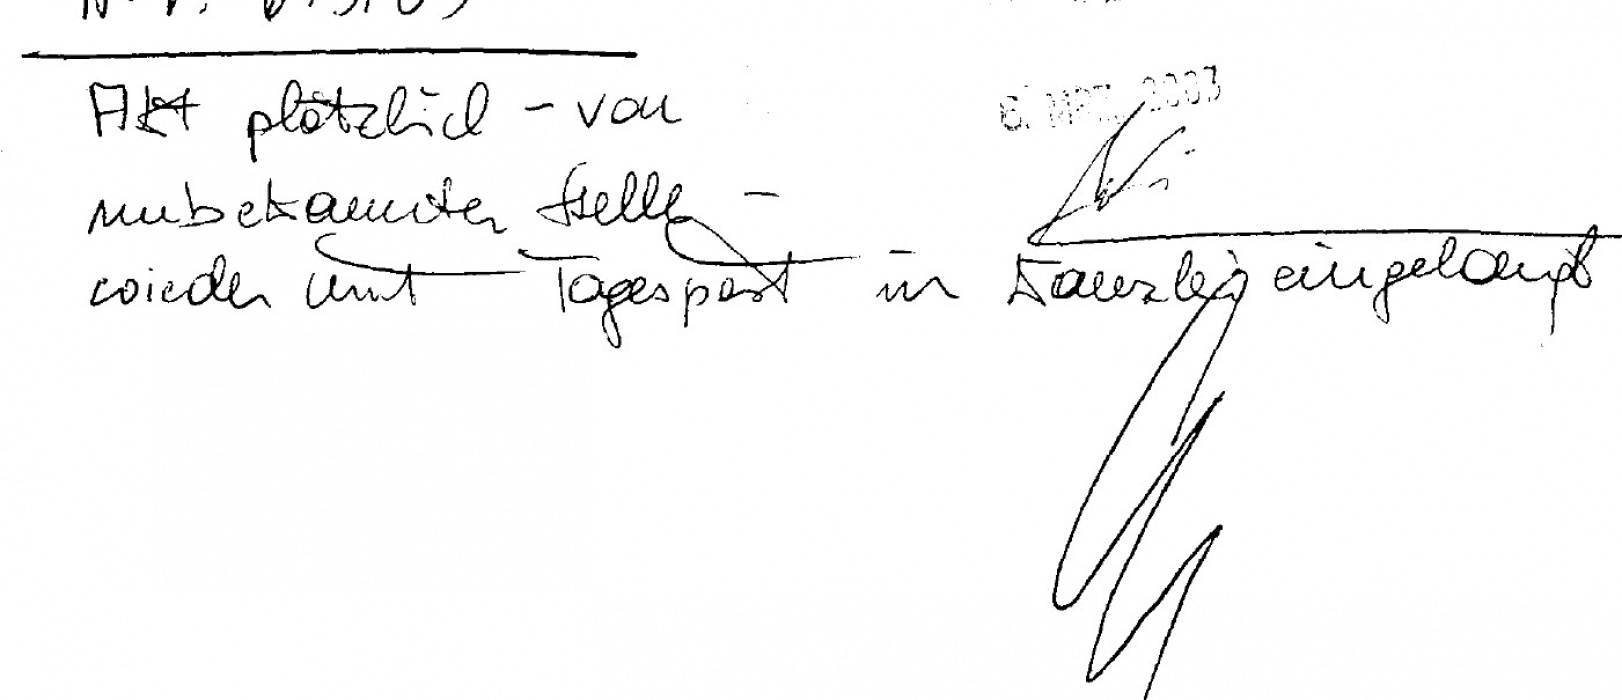 Akt plötzlich - von
6. MRZ. 2003
unbekannter Stelle -
wieder mit Tagespost in Kanzlei eingelangt